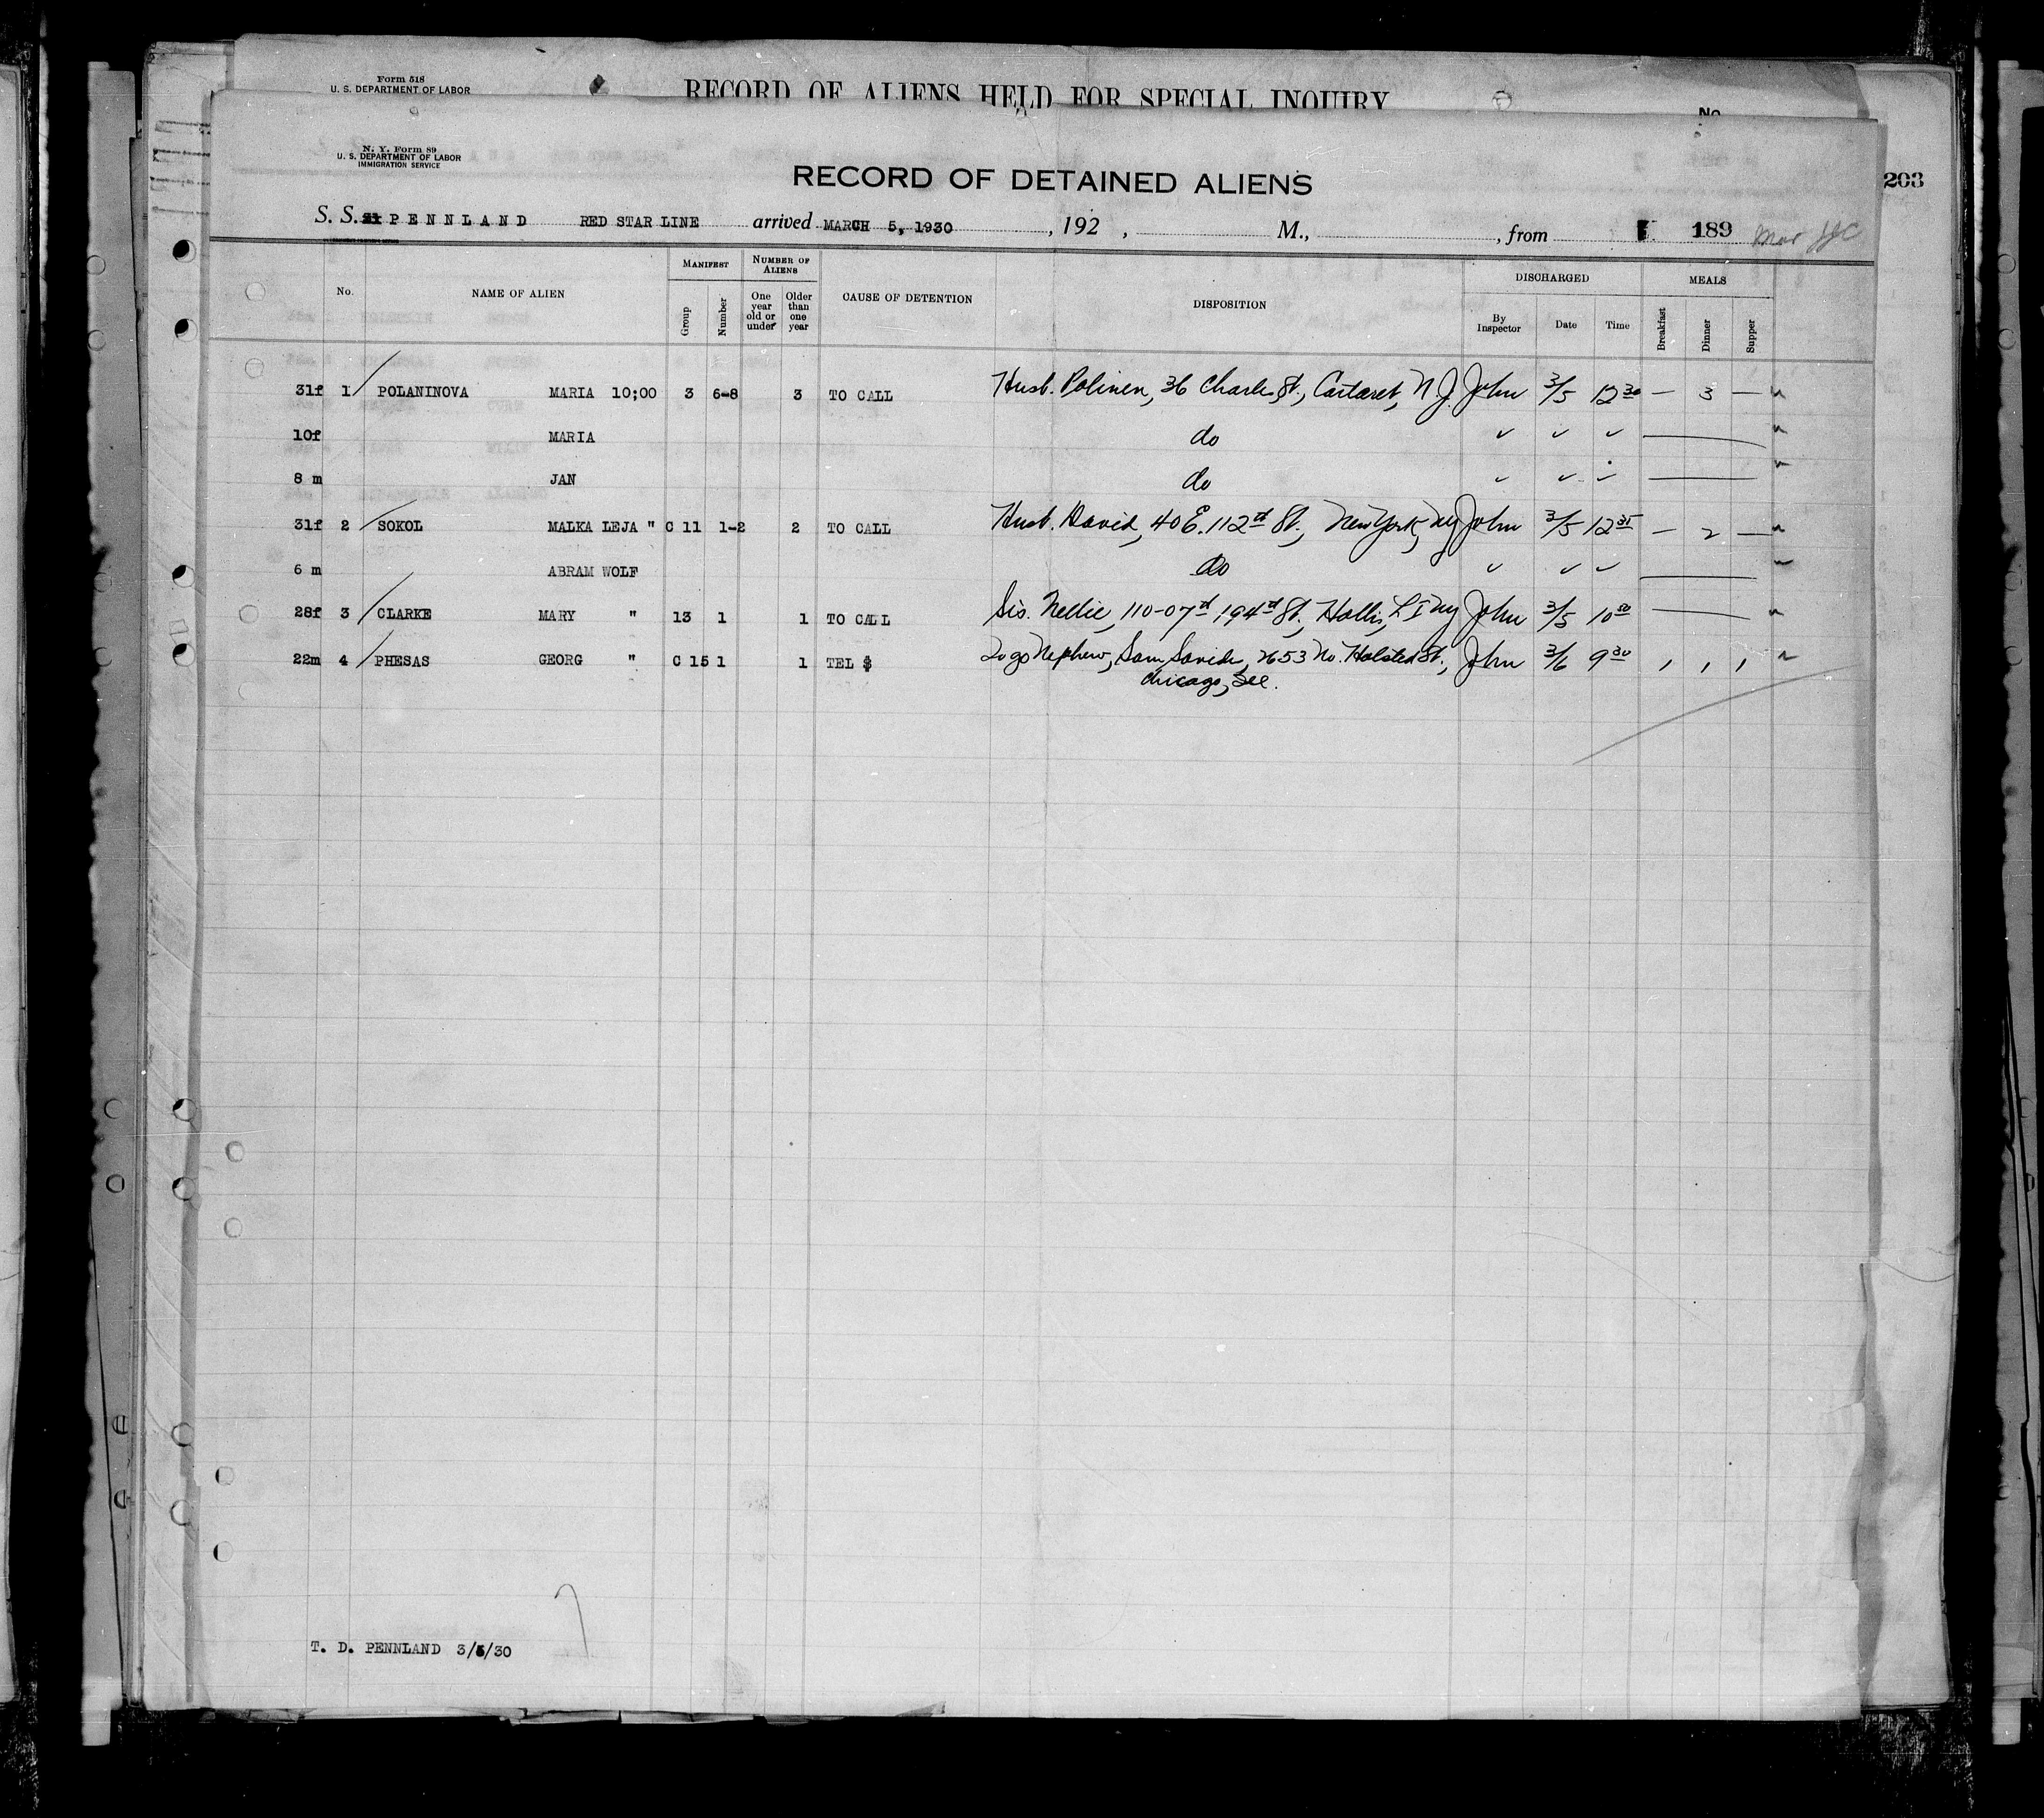 Form 518
U. S. DEPARTMENT OF LABOR
RECORD OF ALIENS HELD FOR SPECIAL INQUIRY
No.
N. Y. Form 89
U. S. DEPARTMENT OF LABOR
IMMIGRATION SERVICE
RECORD OF DETAINED ALIENS
203
S. S. PENNLAND RED STAR LINE arrived MARCH 5, 1930, 192 , M., , from 189 Mar
No. NAME OF ALIEN MANIFEST Group Number NUMBER OF ALIENS One year old or under Older than one year CAUSE OF DETENTION DISPOSITION DISCHARGED By Inspector Date Time MEALS Breakfast Dinner Supper
31f 1 POLANINOVA MARIA 10;00 3 6-8 3 TO CALL Husb. Polinen, 36 Charles St., Cartaret, N.J. John 3/5 12 30 — 3 —
10f MARIA do ✓ ✓ ✓
8 m JAN do ✓ ✓ ✓
31f 2 SOKOL MALKA LEJA " C 11 1-2 2 TO CALL Husb. David, 40 E. 112th St., New York, NY John 3/5 12 35 — 2 —
6 m ABRAM WOLF do ✓ ✓ ✓
28f 3 CLARKE MARY " 13 1 1 TO CALL Sis. Nellie, 110-07th 194th St., Hollis, L I NY John 3/5 10 50
22m 4 PHESAS GEORG " C 15 1 1 TEL $ To go Nephew, Sam Savich, 2653 No. Halsted St., John 3/6 9 30 1 1 1
Chicago, Ill.
T. D. PENNLAND 3/5/30